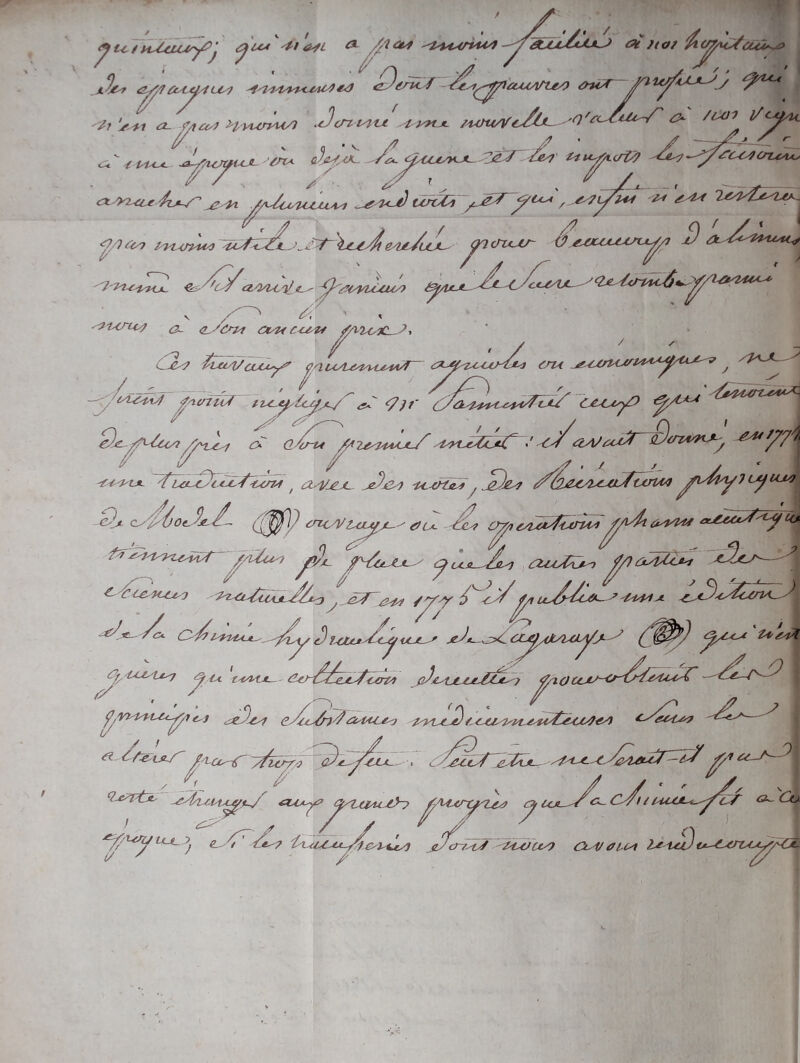 quintaux; qui n'en a pas moins facilité à nos hopitaux
des épargnes immenses dont les pauvres ont profité; qui
n'en a pas moins donné une nouvelle valeur à nos vign
à une époque où déjà la guerre et les impots les faisoient
arracher en plusieurs endroits, et qui, enfin n'en restera
pas moins utile et recherchée pour beaucoup d'alimens
même s'il arrive jamais que le sucre retombe parmi
nous à son ancien prix.
Ces travaux purement agricoles ou économiques, ne
firent point négliger à Mr Parmentier ceux qui tenoient
de plus près à son premier métier: il avait donné, en 177
une traduction, avec des notes, des Récréations physiques
de Model ouvrage où les operations pharmaceutiqu
tiennent plus de place que les autres parties des
sciences naturelles, et en 1775 il publia une édition
de la chimie hydraulique de Lagaraye qui n'est
guères qu'une collection de recettes pour obtenir les
principes des substances médicamenteuses sans les
altérer par trop de feu. Peut être ne serait-il pas
resté étranger aux grands progrès que la chimie fit à ce
époque, si les tracasseries dont nous avons rendu compte